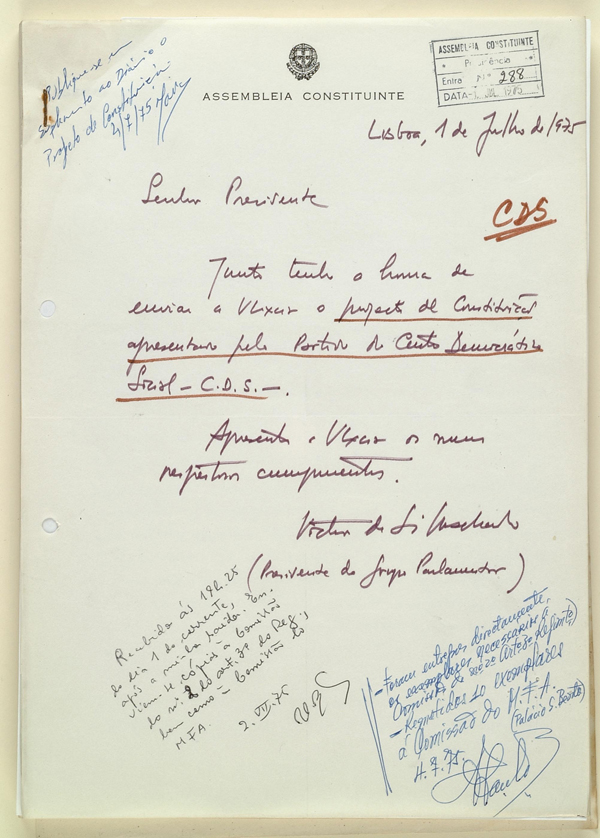 Publique-se em
suplemento ao Diário o
Projeto de Constituição
4/7/75
ASSEMBLEIA CONSTITUINTE
ASSEMBLEIA CONSTITUINTE
Presidência
Entra Nº 288
DATA 1 JUL. 1975
Lisboa, 1 de Julho de 1975
Senhor Presidente
CDS
Junto tenho a honra de
enviar a V. Excia o projecto de Constituição
apresentado pelo Partido do Centro Democrático
Social - C.D.S. -.
Apresento a V. Excia os meus
respeitosos cumprimentos.
Victor de Sá Machado
(Presidente do Grupo Parlamentar)
Recebido às 19h.25
do dia 1 do corrente,
após a minha saída. En-
viem-se cópias à Comissão
do nº 2 do art. 3º do Reg.,
bem como à Comissão do
M.F.A.
2.VII.75
- Foram entregues directamente,
os exemplares necessários à
Comissão
- Remetidos 10 exemplares
à Comissão do M.F.A.
(Palácio S. Bento)
4.7.75